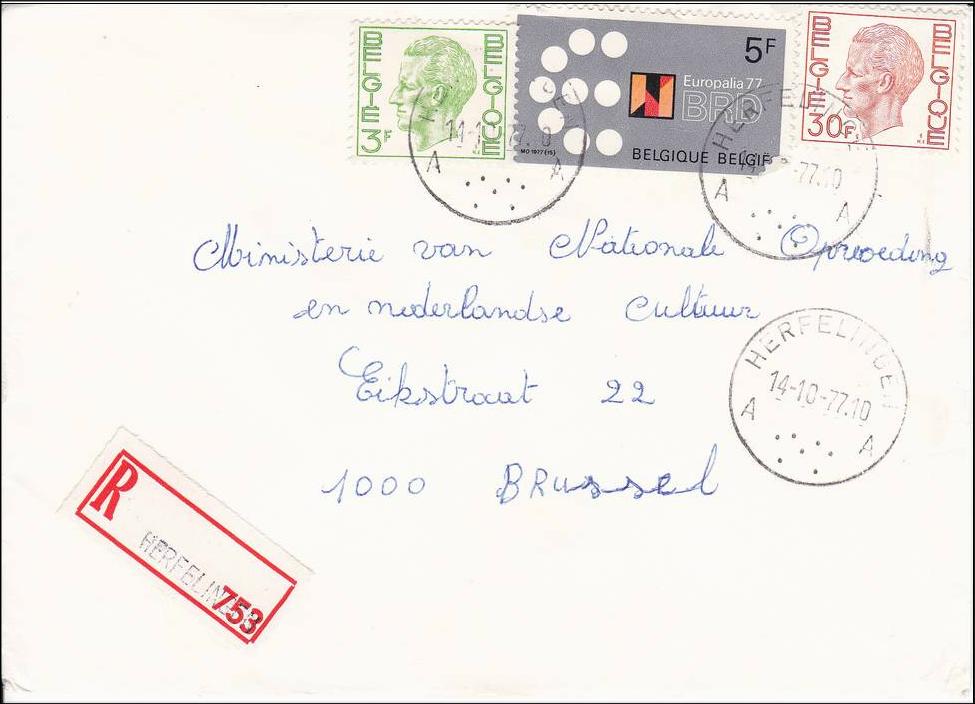 BELGIE BELGIQUE
3F
5F
Europalia 77
BRD
MO 1977 (15)
BELGIQUE BELGIË
BELGIE BELGIQUE
30F
14-1 77.10
A A
HERFELIN
-77.10
A A
Ministerie van Nationale Opvoeding
en nederlandse Cultuur
Eikstraat 22
1000 BRussel
HERFELINGEN
14-10-77.10
A A
R
HERFELING
753